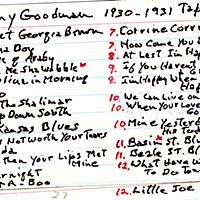 ny Goodman 1930-1931 Tap
et Georgia Brown
na Day
k of Araby
Me She Wobble
lues in Morning
d
The Shalimar
p Down South
Kansas Blues
t Not Worth Your Tears
da
hen Your Lips Met
Mine
rnight
T-A-Boo
7. Corrine Corri
7. How Came You
8. At Last I'm Happ
9. If You Haven't G
9. I'm Happy When
Happ
10. We Can Live on
10. When Your Love
Go
10. Mine Yesterd
His Tod
11. Basin St. Bl
11. Beale St. Bl
12. What Have W
To Do Ton
12. Little Joe
27